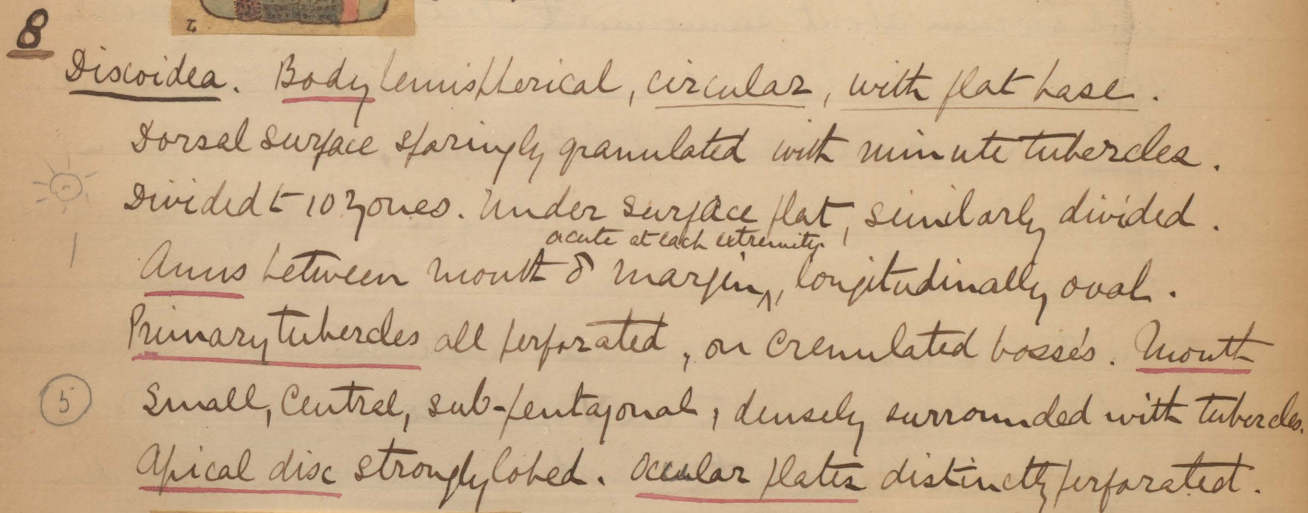 2
8
Discoidea. Body hemispherical, circular, with flat base.
Dorsal surface sparingly granulated with minute tubercles.
Divided to 10 zones. Under surface flat, similarly divided.
acute at each extremity.
Anus between mouth & margin ^, longitudinally oval.
Primary tubercles all perforated, on crenulated bosses. Mouth
5
Small, Central, sub-pentagonal, densely surrounded with tubercles.
Apical disc strongly lobed. Ocular plates distinctly perforated.